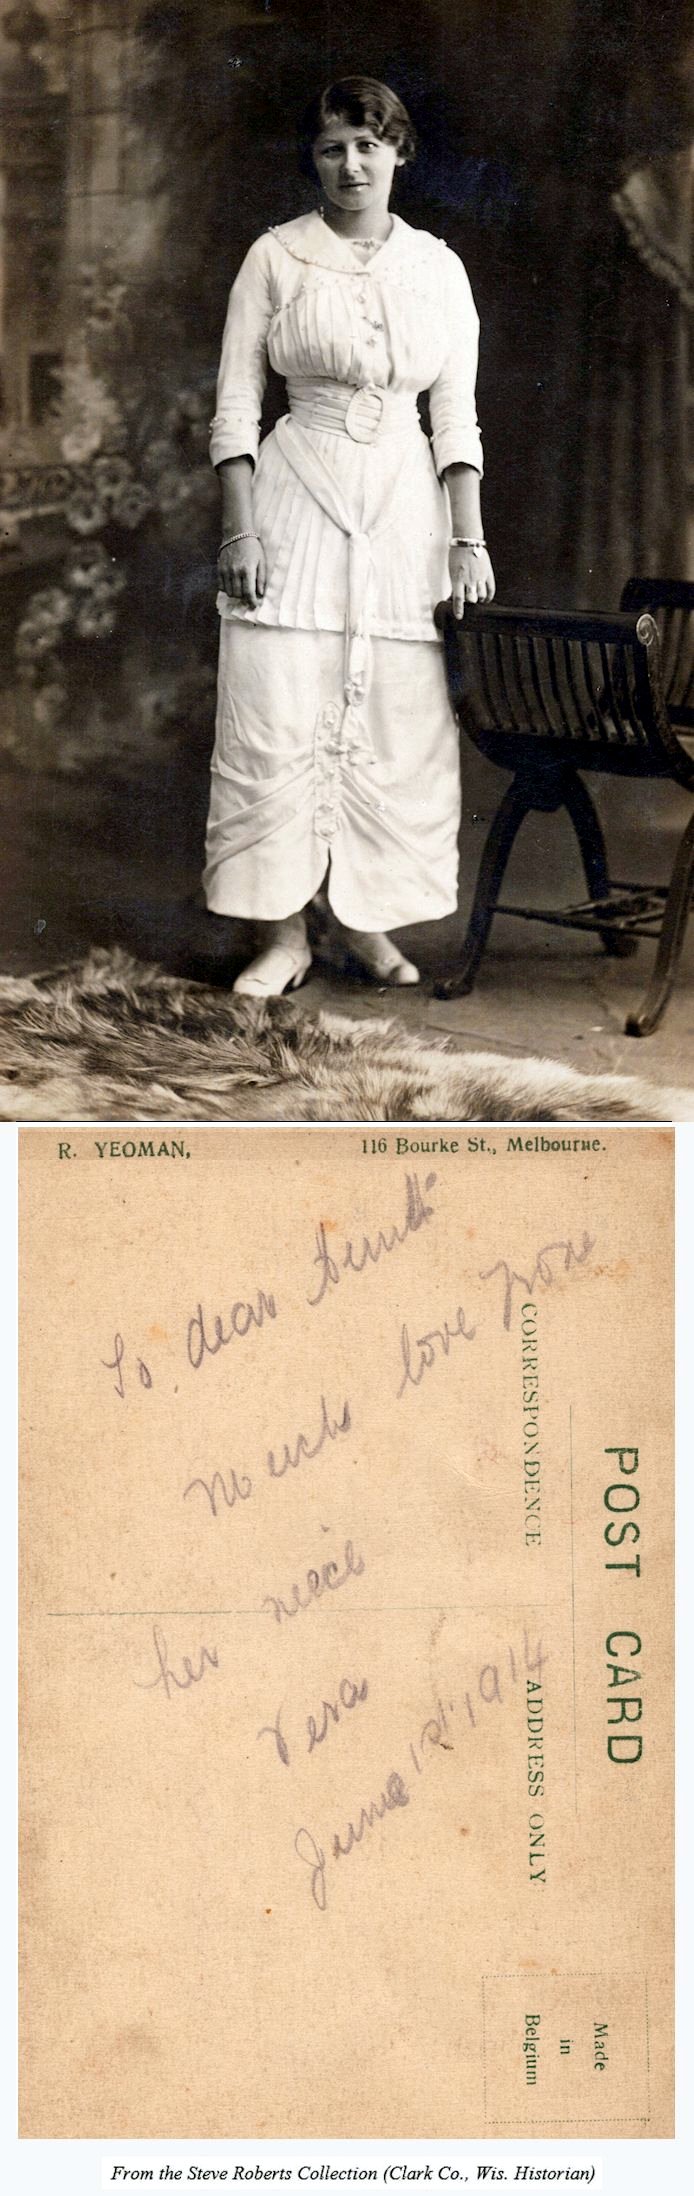 R. YEOMAN, 116 Bourke St., Melbourne.
To dear
Much love from
her neice
Vera
June 1st 1914
POST CARD
CORRESPONDENCE
ADDRESS ONLY
Made
in
Belgium
From the Steve Roberts Collection (Clark Co., Wis. Historian)